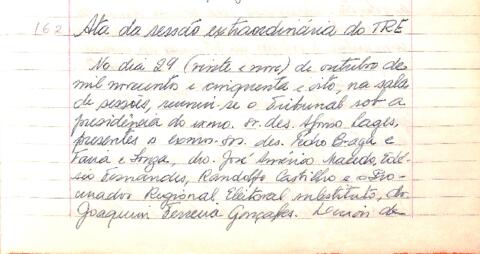 162 Ata da sessão extraordinária do TRE
No dia 29 (vinte e nove) de outubro de
mil novecentos e cinquenta e oito, na sala
de sessões, reuniu-se o Tribunal sob a
presidência do exmo. sr. des. Afonso Lages,
presentes os exmos. srs. des. Pedro Braga e
Faria e Souza, drs. José Américo Macedo,
Fernandes, Randolfo Castilho e o Pro-
curador Regional Eleitoral substituto, dr.
Joaquim Ferreira Gonçalves. Depois de